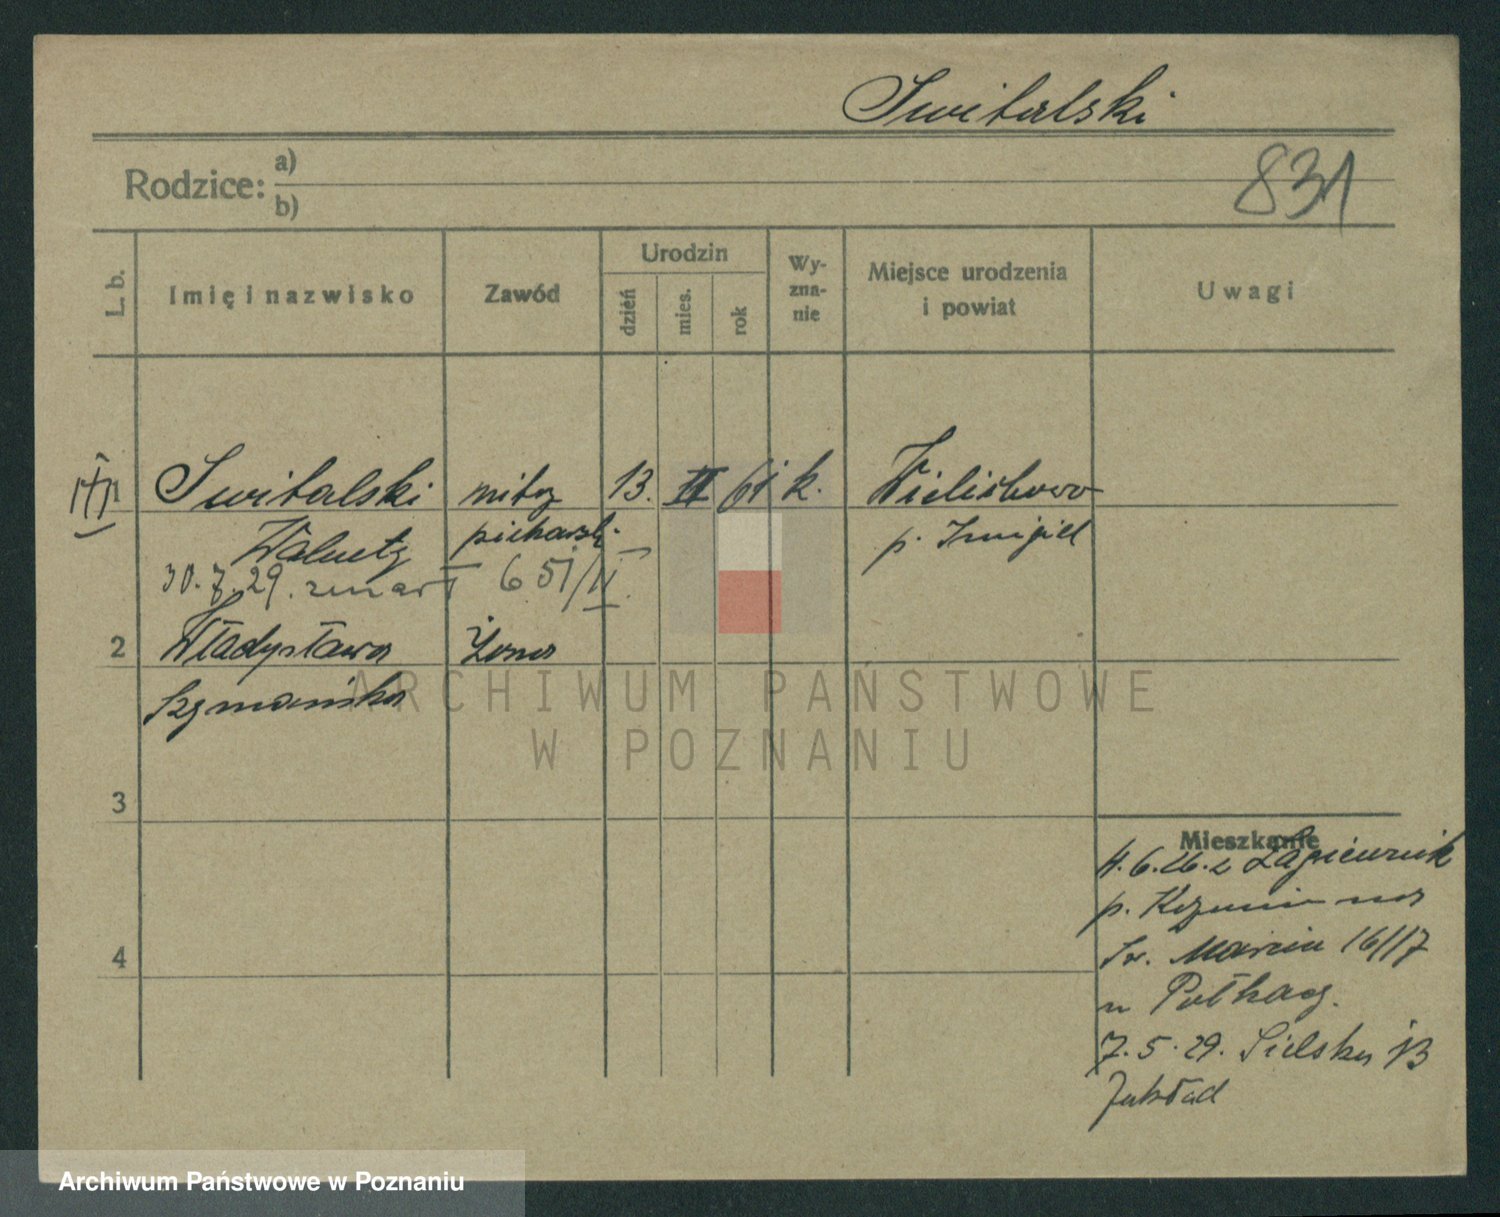 Switalski
831
Rodzice: a)
b)
L. b.
Imię i nazwisko
Zawód
Urodzin
dzień
mies.
rok
Wy-
zna-
nie
Miejsce urodzenia
i powiat
Uwagi
1 Switalski mistrz 13. II 61 k. Wielichowo
Walenty piekarski p. Śmigiel
30.7.29. zmarł 651/II
2 Władysława żona
Szymańska
ARCHIWUM PAŃSTWOWE
W POZNANIU
3
Mieszkanie
4.6.26. z Łagiewnik
p. Koźmin na
4
Św. Marcin 16/17
u
7.5.29. Sielska 13
Zakład
Archiwum Państwowe w Poznaniu